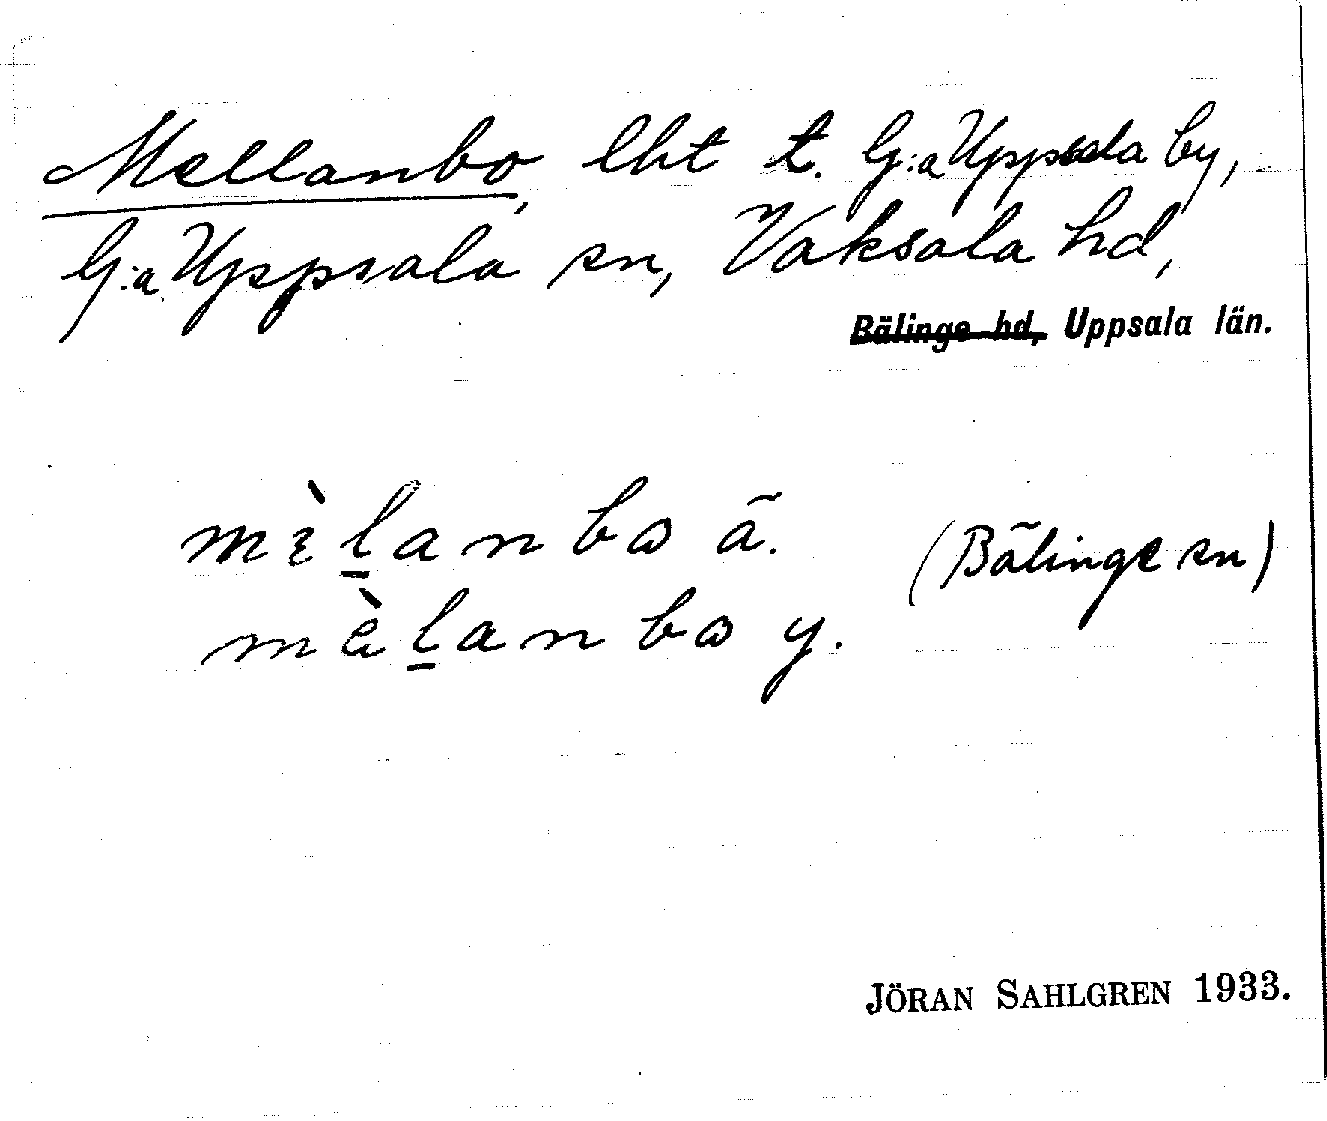 Mellanbo, lht t. G:a Uppsala by,
G:a Uppsala sn, Vaksala hd,
Bälinge hd, Uppsala län.
mὲl̠anbɷ ä.
(Bälinge sn)
mèl̠anbɷ y.
JÖRAN SAHLGREN 1933.